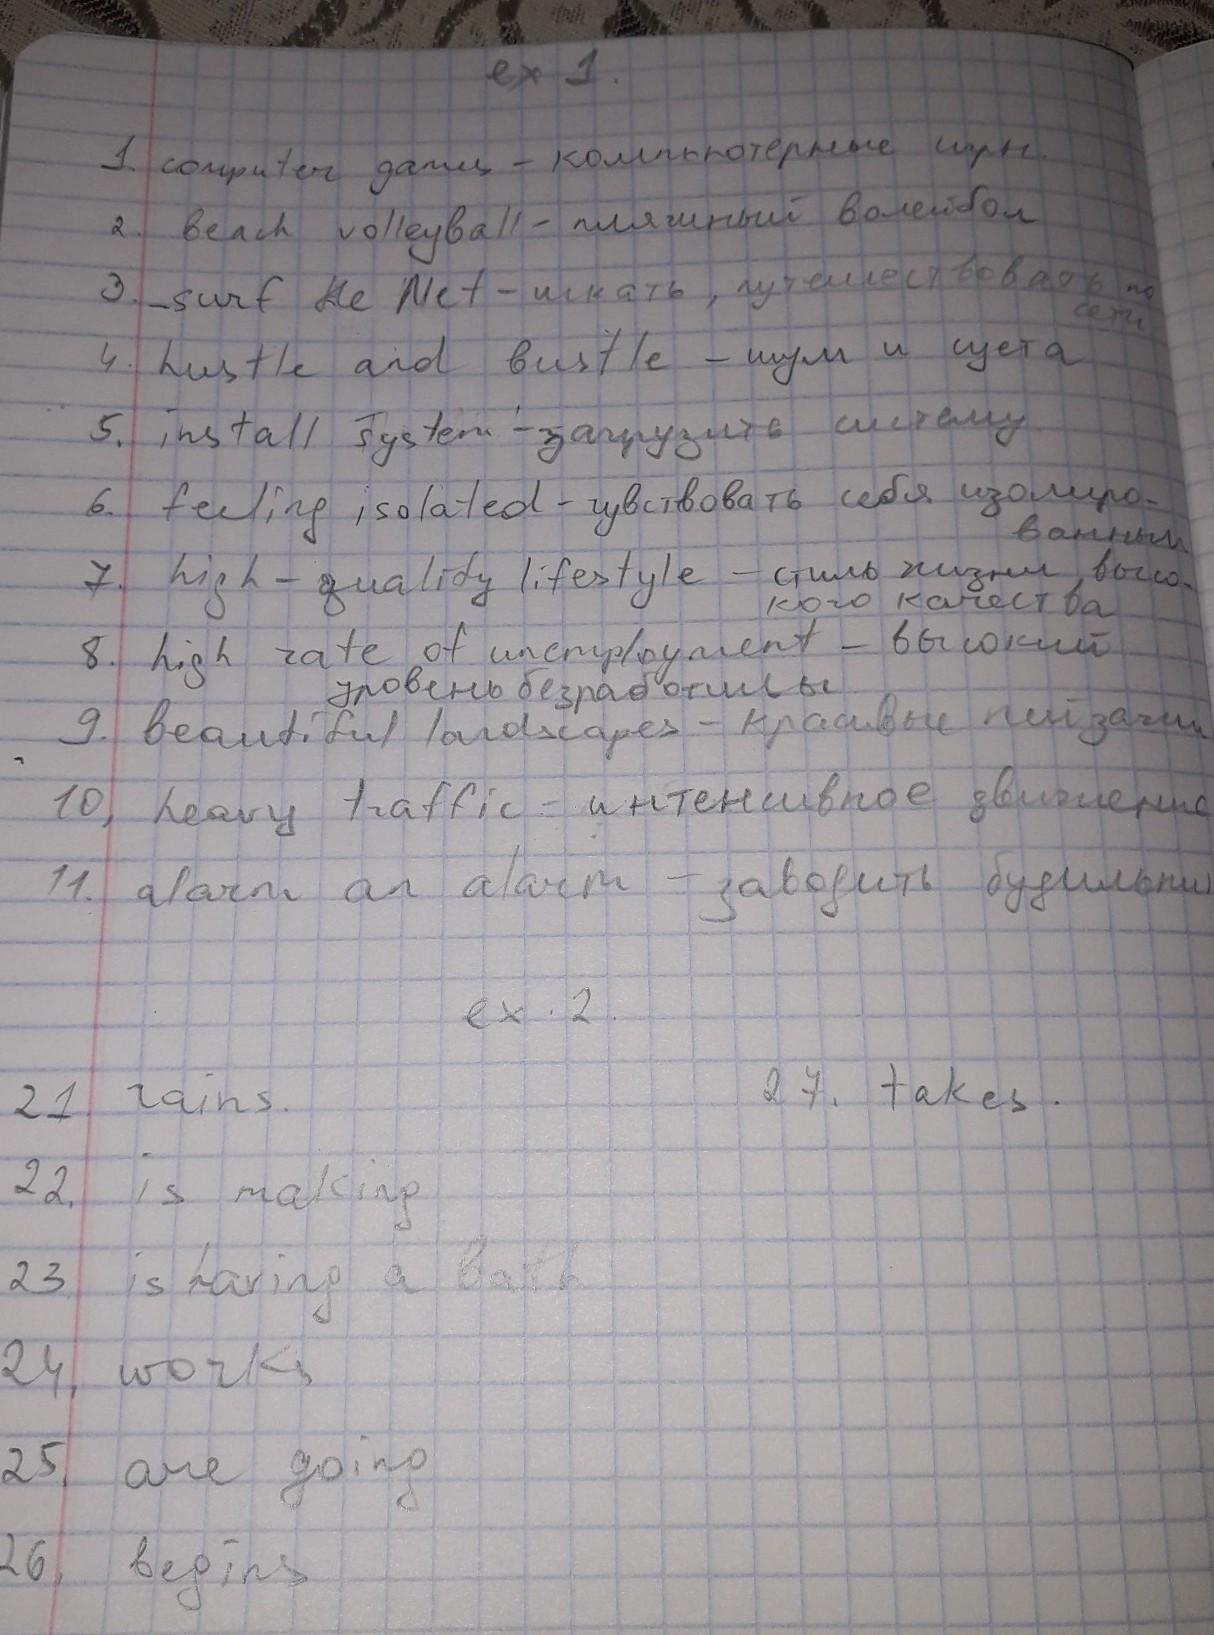 ex 1.
1. computer games - компьютерные игры.
2. beach volleyball - пляжный волейбол
3. surf the Net - искать, путешествовать по
сети
4. hustle and bustle - шум и суета
5. install system - загрузить систему
6. feeling isolated - чувствовать себя изолиро-
ванным
7. high-quality lifestyle - стиль жизни высо-
кого качества
8. high rate of unemployment - высокий
уровень безработицы
9. beautiful landscapes - красивые пейзажи
10, heavy traffic - интенсивное движение
11. alarm an alarm - заводить будильник
ex. 2.
21 rains.
27. takes.
22. is making
23 is having a bath
24, works
25. are going
26. begins